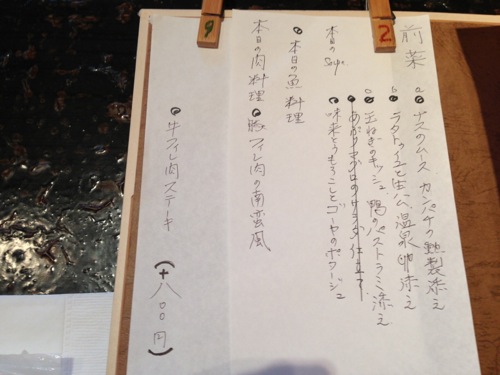 前菜
a ナスのムース カンパチの燻製添え
b ラタトゥイユと生ハム、温泉卵添え
c 玉ねぎのキッシュ、鴨のパストラミ添え
のサラダ仕立て
本日のSoupe
味来とうもろこしとゴーヤのポタージュ
本日の魚料理
本日の肉料理
豚フィレ肉の南蛮風
牛フィレ肉ステーキ (+八〇〇円)
2
9